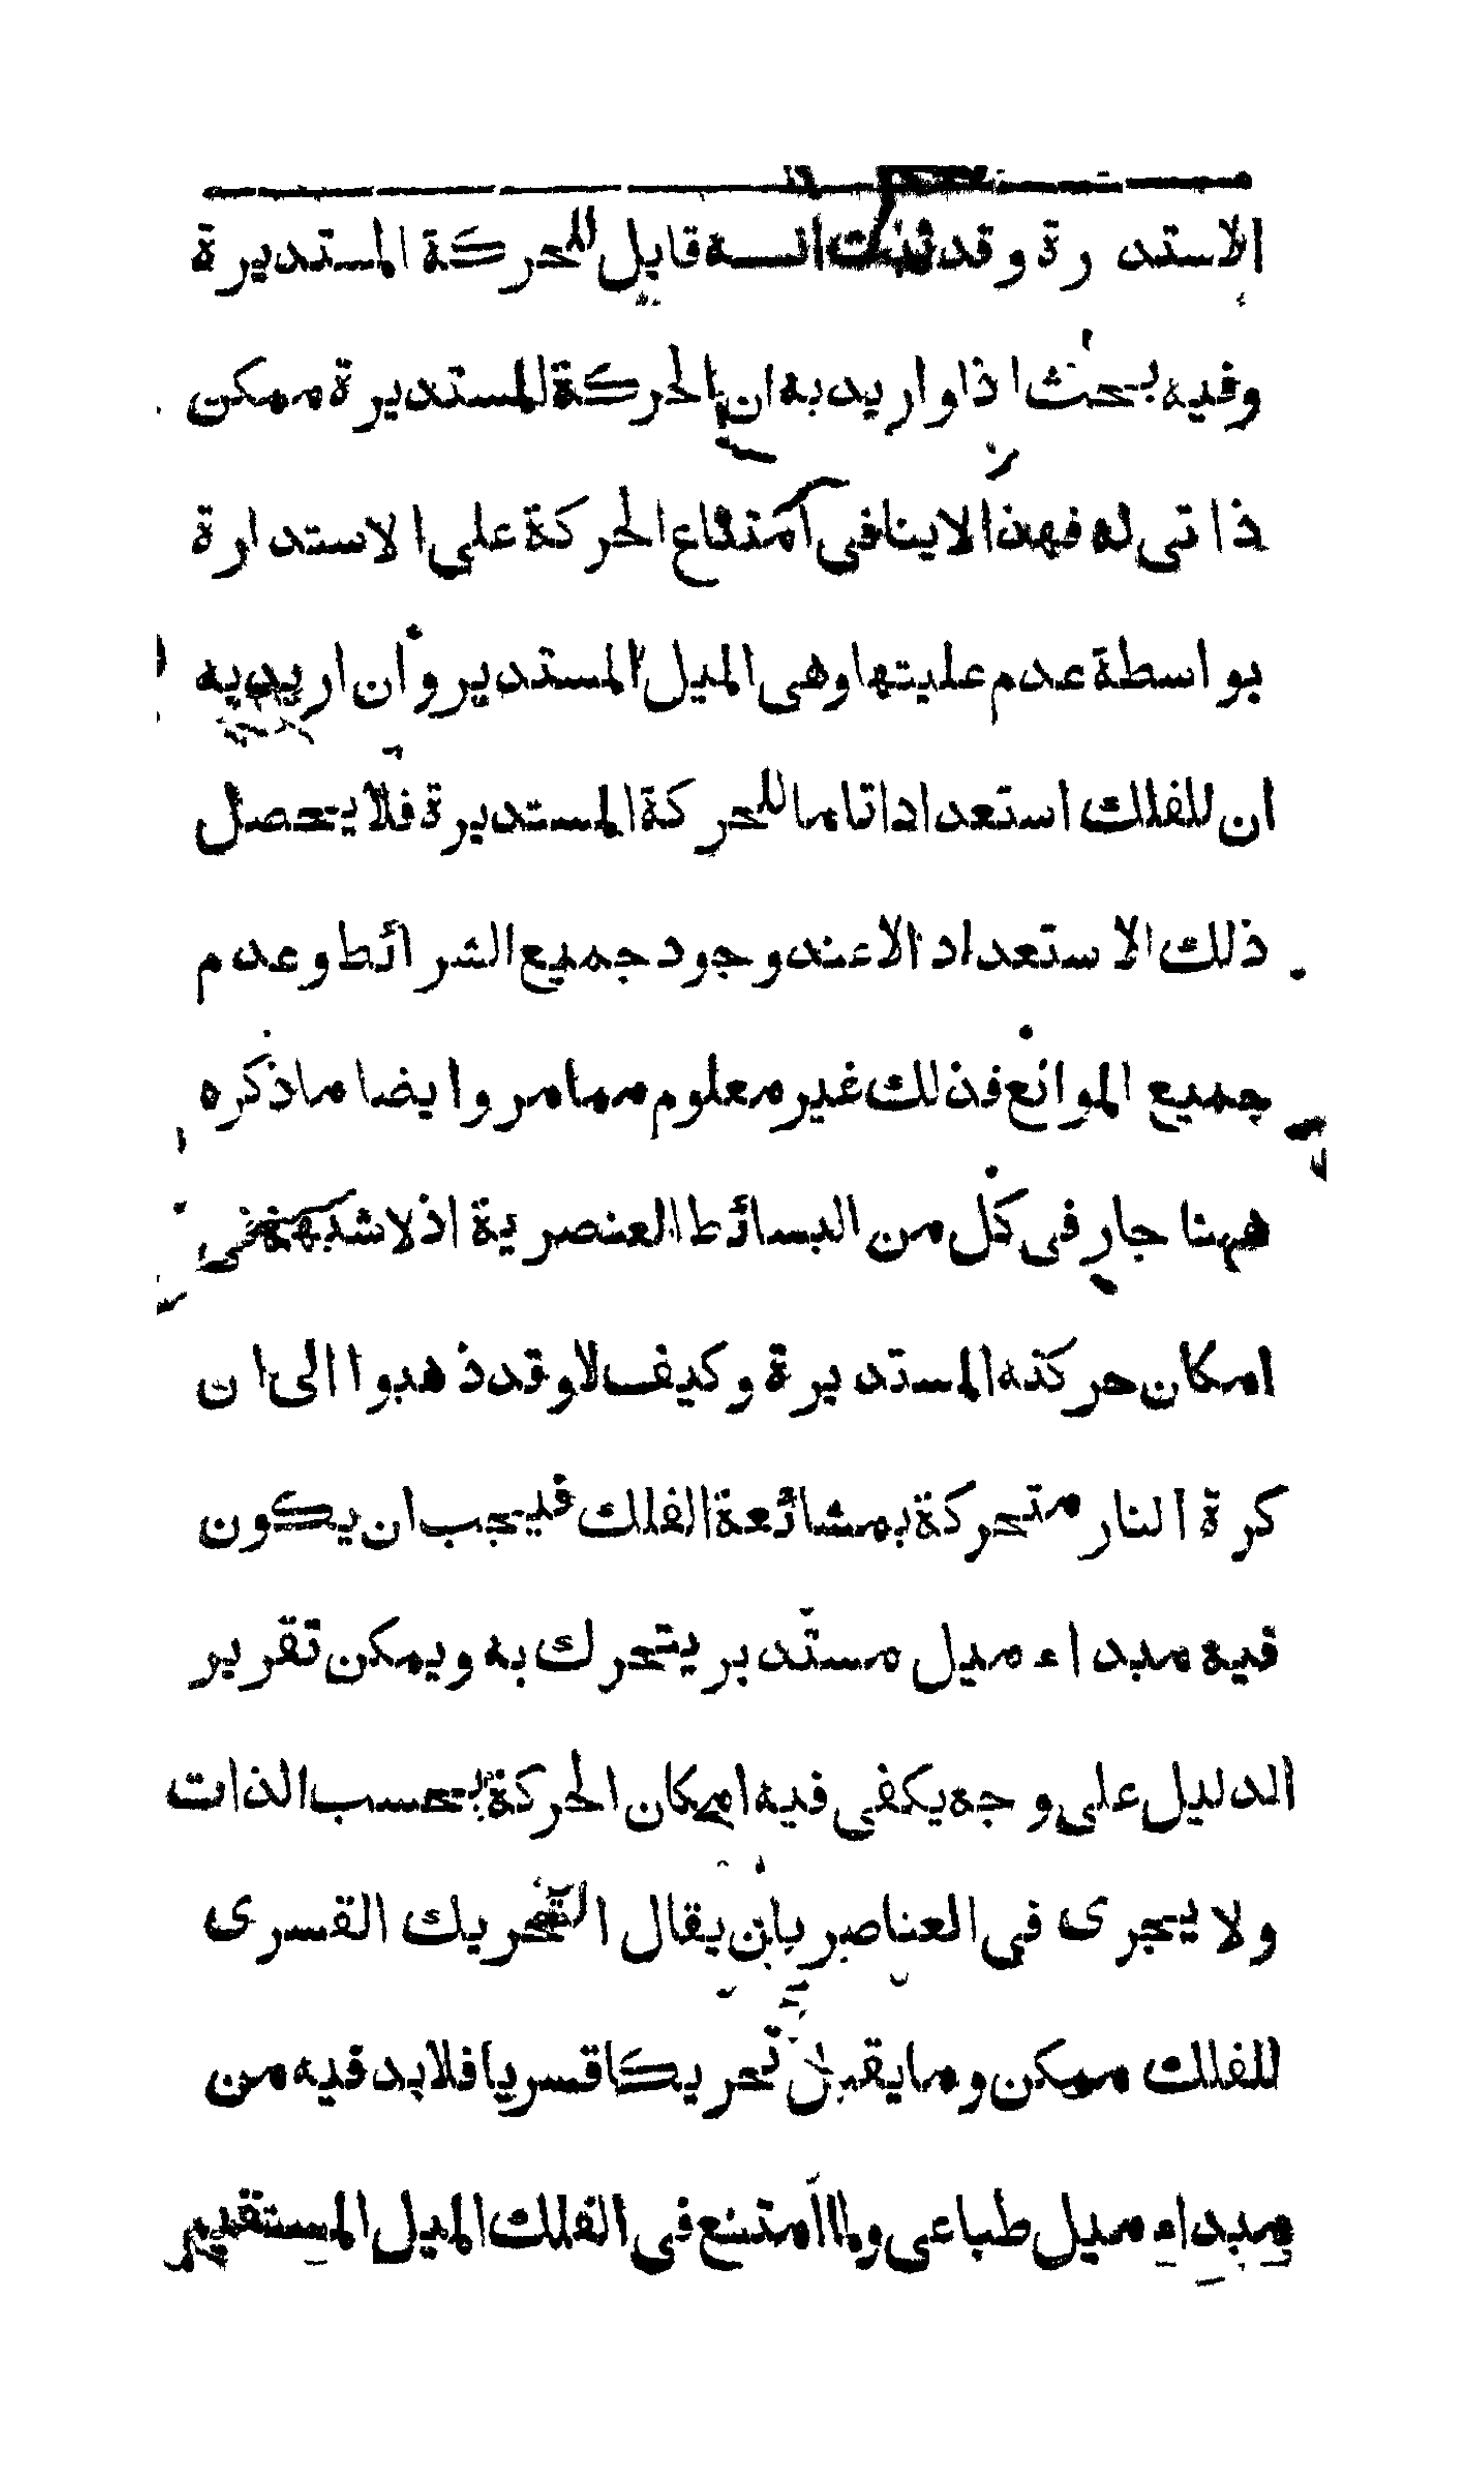 الاستدارة وقد ثبت انه قابل للحركة المستديرة
وفيه بحث اذ لو اريد به ان الحركة المستديرة ممكن
ذاتى له فهذا لا ينافى امتناع الحركة على الاستدارة
بواسطة عدم عليتها وهى الميل المستدير وان اريد به
ان للفلك استعدادا تاما للحركة المستديرة فلا يحصل
ذلك الاستعداد الا عند وجود جميع الشرائط وعدم
جميع الموانع فذلك غير معلوم مما مر وايضا ما ذكره
ههنا جار فى كل من البسائط العنصرية اذ لا شبهة فى
امكان حركته المستديرة وكيف لا وقد ذهبوا الى ان
كرة النار متحركة بمشائعة الفلك فيجب ان يكون
فيه مبداء ميل مستدير يتحرك به ويمكن تقرير
الدليل على وجه يكفى فيه امكان الحركة بحسب الذات
ولا يجرى فى العناصر بان يقال التحريك القسرى
للفلك ممكن وما يقبل تحريكا قسريا فلا بد فيه من
مبداء ميل طباعى ولما امتنع فى الفلك الميل المستقيم